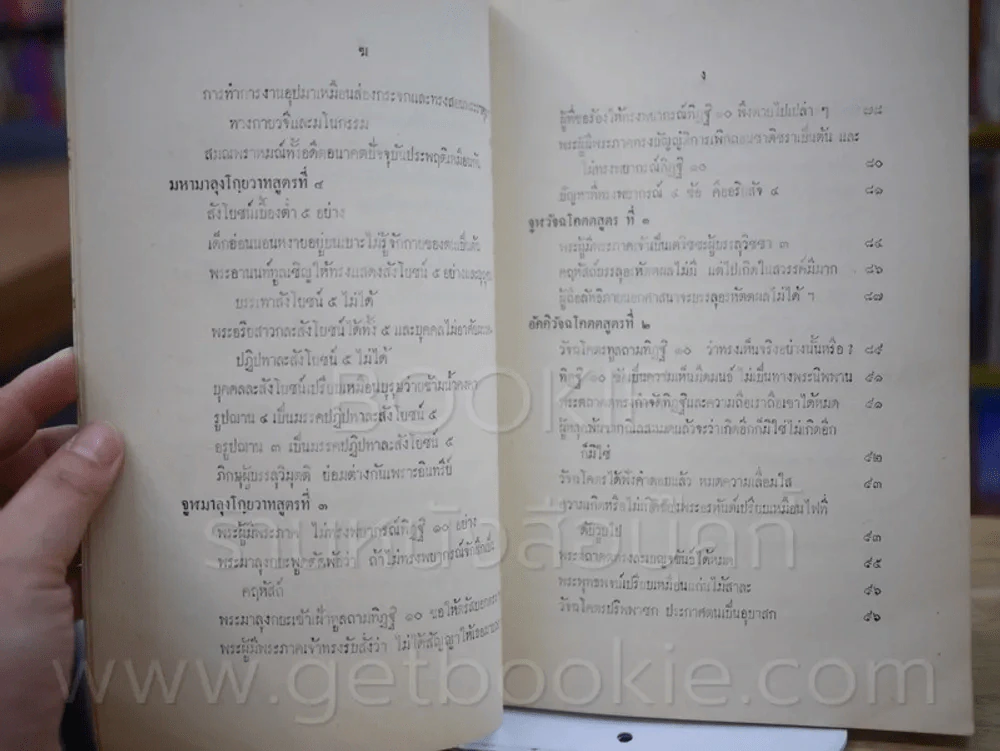 ฆ
การทำการงานอุปมาเหมือนส่องกระจกและทรงสอน
ทางกายวจีและมโนกรรม
สมณพราหมณ์ทั้งอดีตอนาคตปัจจุบันประพฤติเหมือนกัน
มหามาลุงโกฺยวาทสูตรที่ ๔
สังโยชน์เบื้องต่ำ ๕ อย่าง
เด็กอ่อนนอนหงายอยู่บนเบาะไม่รู้จักกายของตนเป็นต้น
พระอานนท์ทูลเชิญให้ทรงแสดงสังโยชน์ ๕ อย่าง
บรรเทาสังโยชน์ ๕ ไม่ได้
พระอริยสาวกละสังโยชน์ได้ทั้ง ๕ และบุคคลไม่อาศัย
ปฏิปทาละสังโยชน์ ๕ ไม่ได้
บุคคลละสังโยชน์เปรียบเหมือนบุรุษว่ายข้ามน้ำคงคา
รูปฌาน ๔ เป็นมรรคปฏิปทาละสังโยชน์ ๕
อรูปฌาน ๓ เป็นมรรคปฏิปทาละสังโยชน์ ๕
ภิกษุผู้บรรลุวิมุตติ ย่อมต่างกันเพราะอินทรีย์
จูฬมาลุงโกฺยวาทสูตรที่ ๓
พระผู้มีพระภาค ไม่ทรงพยากรณ์ทิฏฐิ ๑๐ อย่าง
พระมาลุงกยะพูดตัดพ้อว่า ถ้าไม่ทรงพยากรณ์จักสึกเป็น
คฤหัสถ์
พระมาลุงกยะเข้าเฝ้าทูลถามทิฏฐิ ๑๐ ขอให้ตรัสบอก
พระผู้มีพระภาคเจ้าทรงรับสั่งว่า ไม่ได้สัญญาให้
ง
ผู้ที่ขอร้องให้ทรงพยากรณ์ทิฏฐิ ๑๐ พึงตายไปเปล่า ๆ ๗๘
พระผู้มีพระภาคทรงบัญญัติการเพิกถอนชาติชราเป็นต้น และ
ไม่ทรงพยากรณ์ทิฏฐิ ๑๐ ๘๐
ปัญหาที่ทรงพยากรณ์ ๔ ข้อ คืออริยสัจ ๔ ๘๑
จูฬวัจฉโคตตสูตร ที่ ๑
พระผู้มีพระภาคเจ้าเป็นเตวิชชะผู้บรรลุวิชชา ๓ ๘๔
คฤหัสถ์บรรลุอรหัตตผลไม่มี แต่ไปเกิดในสวรรค์มีมาก ๘๖
ผู้ถือลัทธิภายนอกศาสนาจะบรรลุอรหัตตผลไม่ได้ ๆ ๘๗
อัคคิวัจฉโคตตสูตรที่ ๒
วัจฉโคตรทูลถามทิฏฐิ ๑๐ ว่าทรงเห็นจริงอย่างนั้นหรือ ? ๘๙
ทิฏฐิ ๑๐ ซึ่งเป็นความเห็นผิดมนธ์ ไม่เป็นทางพระนิพพาน ๙๑
พระตถาคตทรงกำจัดทิฏฐิและความถือเราถือเขาได้หมด ๙๑
ผู้หลุดพ้นจากกิเลสแล้วจะว่าเกิดอีกก็มิใช่ไม่เกิดอีก
ก็มิใช่ ๙๒
วัจฉโคตรได้ฟังคำตอบแล้ว หมดความเลื่อมใส ๙๓
ความเกิดหรือไม่เกิดของพระอรหันต์เปรียบเหมือนไฟที่
ดับวูบไป ๙๓
พระตถาคตทรงละเบญจขันธ์ได้หมด ๙๕
พระพุทธพจน์เปรียบเหมือนแก่นไม้สาละ ๙๖
วัจฉโคตรปริพพาชก ประกาศตนเป็นอุบาสก ๙๖
BOOKIE
ร้านหนังสือบุ๊คกี้
www.getbookie.com